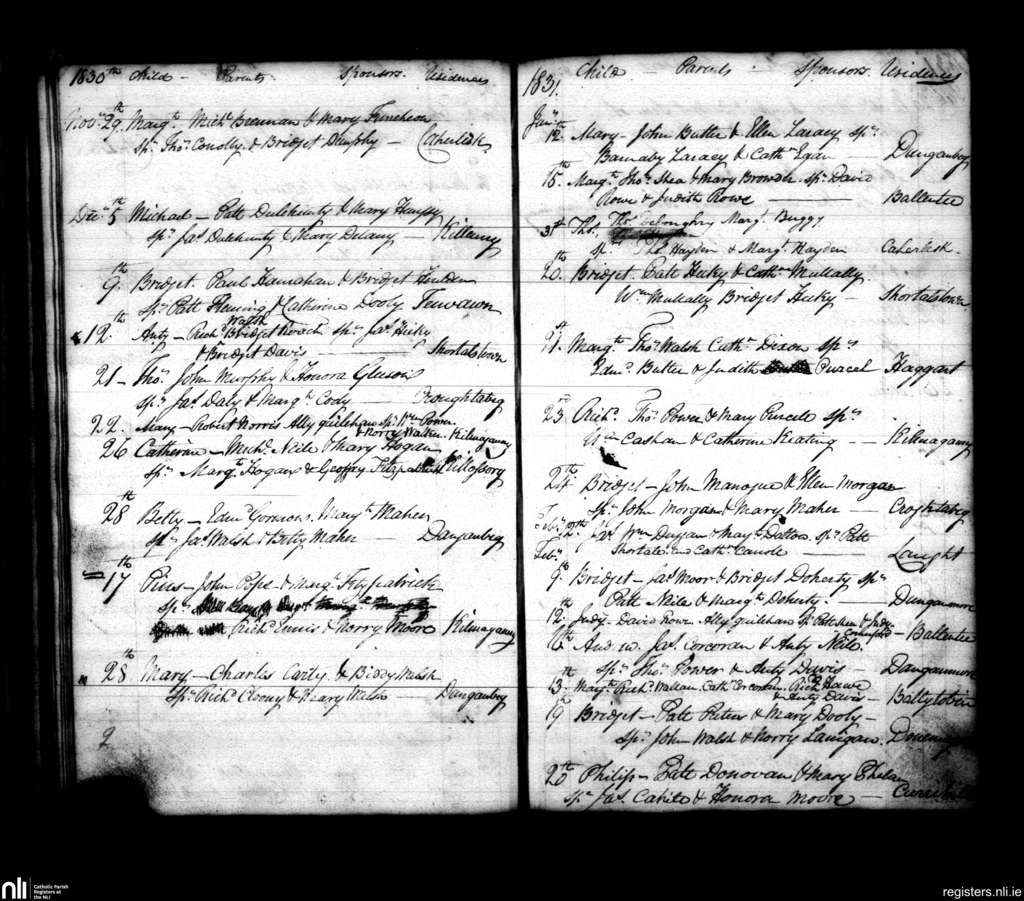 1830th Child - Parents Sponsors. Residences
Novr. 29th Margt. Michl. Brennan & Mary Funcheon
Sprs. Thos. Conolly & Bridget Dunphy - Caherlesk
Decr. 5th Michael - Patt Dulehunty & Mary
Sprs. Jas. Dulehunty & Mary Delany Killamy
9th Bridget. Paul Hanrahan & Bridget
Sprs. Patt Fleming & Catherine Dooly
12th Anty - Richd. Walsh Bridget Roach sprs. Jas. Hicky
& Bridget Davis - Shortalstown
21 - Thos. John Murphy & Honora Gleeson
Sprs. Jas. Daly & Margt. Cody - Croughtabeg
22. Mary - Robert Norris Ally guilshan sprs. Wm. Power
& Norry Wallin. Kilmaganny
26 Catherine - Michl. Neile & Mary Hogan
Sprs. Margt. Hogan & Geoffry Kilossory
28th Betty - Edmd. Gorman. Margt. Maher
Sprs. Jas. Walsh & Betty Maher - Dunganbeg
17th Pius - John Pope & Margt. Fitzpatrick
Sprs.
Richd. Ennis & Norry Moore Kilmaganny
28th Mary - Charles Carty & Biddy Walsh
Sprs. Richd. Clooney & Mary Walsh Dunganbeg
2
1831. Child - Parents - Sponsors. Residences
Jany. 12th Mary - John Butler & Ellen Laracy sprs.
Barnaby Laracy & Cathn. Egan - Dunganbeg
15th Margt. Thos. Shea & Mary Browder. Sprs. David
Rowe & Judith Rowe - Ballintee
31st Thos. Thos. Delonghry Margt. Buggy
sprs. Thos. Hayden & Margt. Hayden Caherlesk.
20th Bridget. Patt Hicky & Cathn. Mullally
Wm. Mullally Bridget Hicky - Shortalstown
21st Margt. Thos. Walsh Cathn. Dixon sprs.
Edmd. Butler & Judith Purcel Haggart
23rd Richd. Thos. Power & Mary Purcele sprs.
Wm. Cashan & Catherine Keating - Kilmaganny
24th Bridget - John Manogue & Ellen Morgan
Sprs. John Morgan & Mary Maher - Croghtabeg
Feby. 2nd Jas. Wm. Duggan & Margt. Dalton. sprs. Patt
Feby. Shortale and Cathn. Candle - Caught
9th Bridget - Jas. Moor & Bridget Doherty sprs.
Patt Neile & Margt. Doherty. - Dunganmore
12th Judy - David Rowe. Ally guilshan sprs. Patt & Judy
Comerford - Ballintee
16th Andrew. Jas. Corcoran & Anty Neile.
Sprs. Thos. Power & Anty Davis - Dunganmore
13th Margt. Richd. Wallace. Cathn. Corcoran. Richd. Hawe
& Anty Davis - Ballytobin
19th Bridget - Patt Peters & Mary Dooly -
Sprs. John Walsh & Norry Lanigan.
20th Philip - Patt Donovan & Mary Phelan
Sprs. Jas. Cahile & Honora Moore -
nli Catholic Parish
Registers at
the NLI
registers.nli.ie